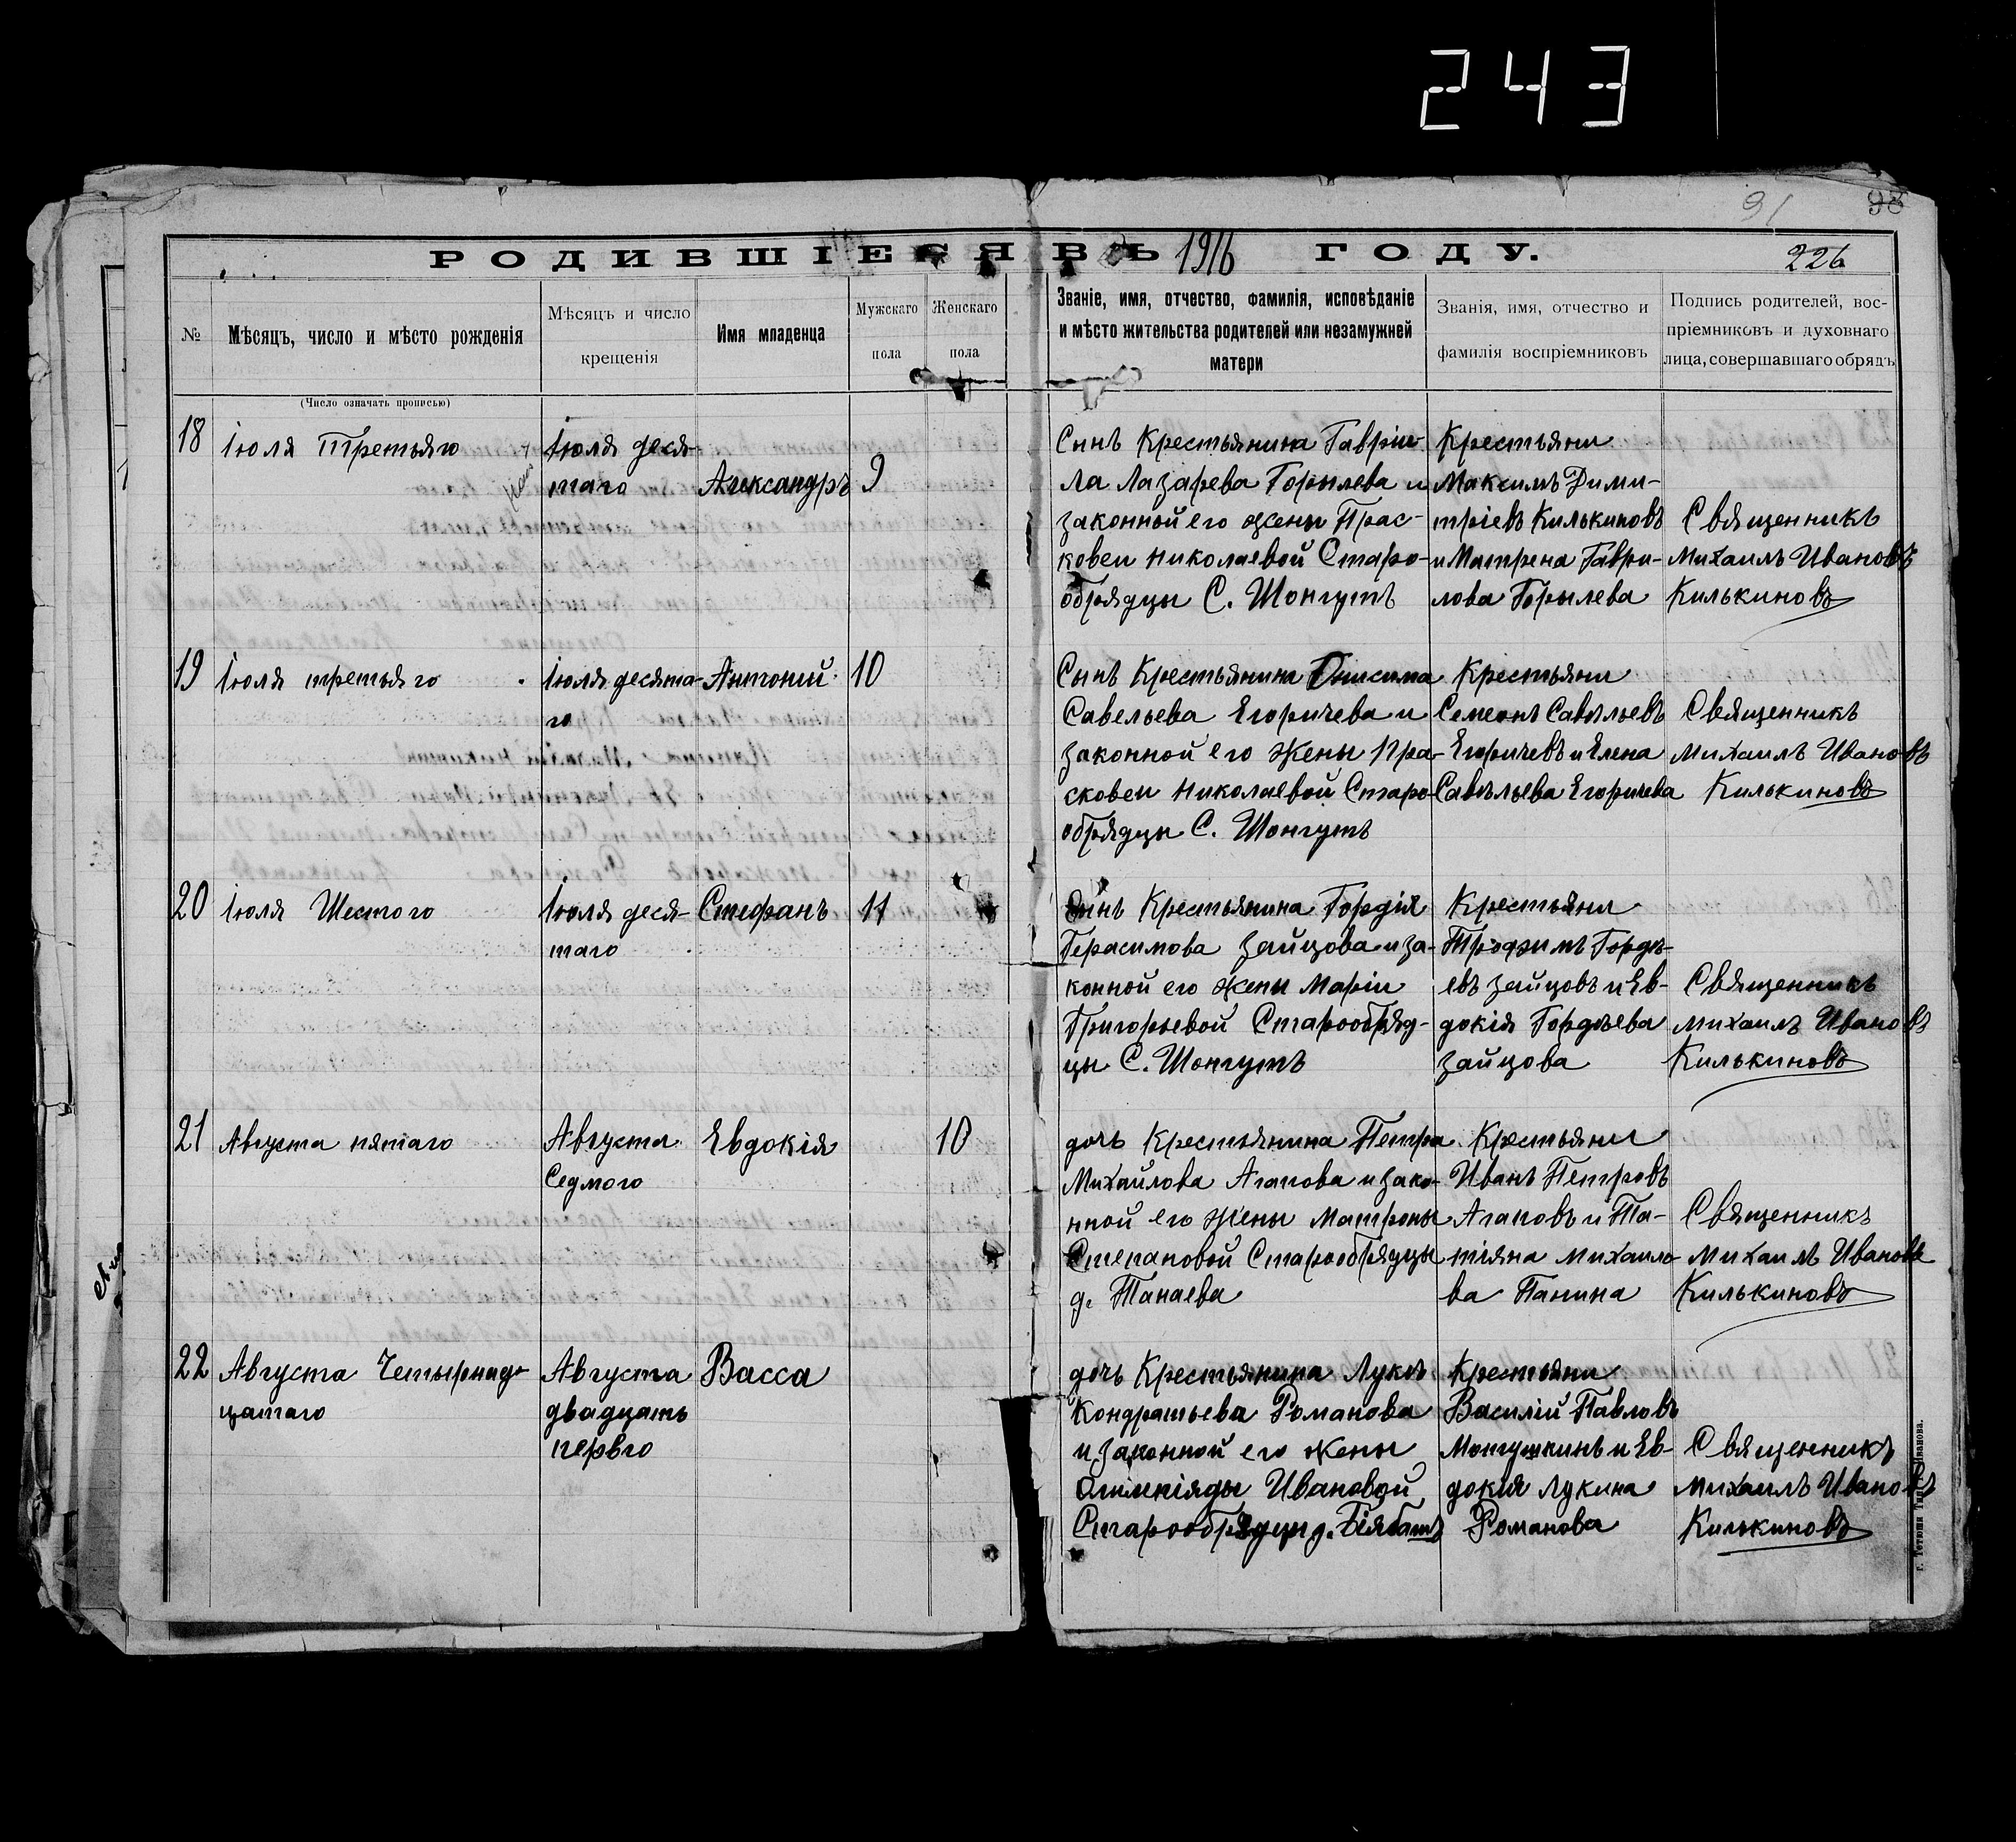 243
91
93
РОДИВШІЕСЯ ВЪ 1916 ГОДУ.
226
№
Мѣсяцъ, число и мѣсто рожденія
(Число означать прописью)
Мѣсяцъ и число
крещенія
Имя младенца
Мужскаго
пола
Женскаго
пола
Званіе, имя, отчество, фамилія, исповѣданіе
и мѣсто жительства родителей или незамужней
матери
Званія, имя, отчество и
фамилія воспріемниковъ
Подпись родителей, вос-
пріемниковъ и духовнаго
лица, совершавшаго обрядъ
18
Іюля Третьяго
Іюля деся-
таго
Александръ
9
Сынъ Крестьянина Гавріи-
ла Лазарева Горылева и
законной его жены Прас-
ковеи Николаевой Старо-
обрядцы С. Шонгутъ
Крестьяни
Максимъ Дими-
тріевъ Килькиновъ
и Матрена Гаври-
лова Горылева
Священникъ
Михаилъ Ивановъ
Килькиновъ
19
Іюля третьяго
Іюля десята-
го
Антоний
10
Сынъ Крестьянина Онисима
Савельева Егоричева и
законной его жены Пра-
сковеи Николаевой Старо-
обрядцы С. Шонгутъ
Крестьяни
Семеонъ Савѣльевъ
Егоричевъ и Елена
Савѣльева Егоричева
Священникъ
Михаилъ Ивановъ
Килькиновъ
20
Іюля Шестого
Іюля деся-
таго
Стефанъ
11
Сынъ Крестьянина Гордія
Герасимова Зайцова и за-
конной его жены Маріи
Григорьевой Старообряд-
цы С. Шонгутъ
Крестьяни
Трофимъ Гордѣ-
евъ Зайцовъ и Ев-
докія Гордѣева
Зайцова
Священникъ
Михаилъ Ивановъ
Килькиновъ
21
Августа пятаго
Августа
Седмого
Евдокія
10
дочь Крестьянина Петра
Михайлова Агапова и зако-
нной его жены Матроны
Степановой Старообрядцы
д. Танаева
Крестьяни
Иванъ Петровъ
Агаповъ и Та-
тіяна Михаило-
ва Панина
Священникъ
Михаилъ Ивановъ
Килькиновъ
22
Августа Четырнад-
цатаго
Августа
двадцать
перваго
Васса
дочь Крестьянина Лукѣ
Кондратьева Романова
и законной его жены
Олимпіяды Ивановой
Старообрядцы д. Біябашъ
Крестьяни
Василій Павловъ
Монгушкинъ и Ев-
докія Лукина
Романова
Священникъ
Михаилъ Ивановъ
Килькиновъ